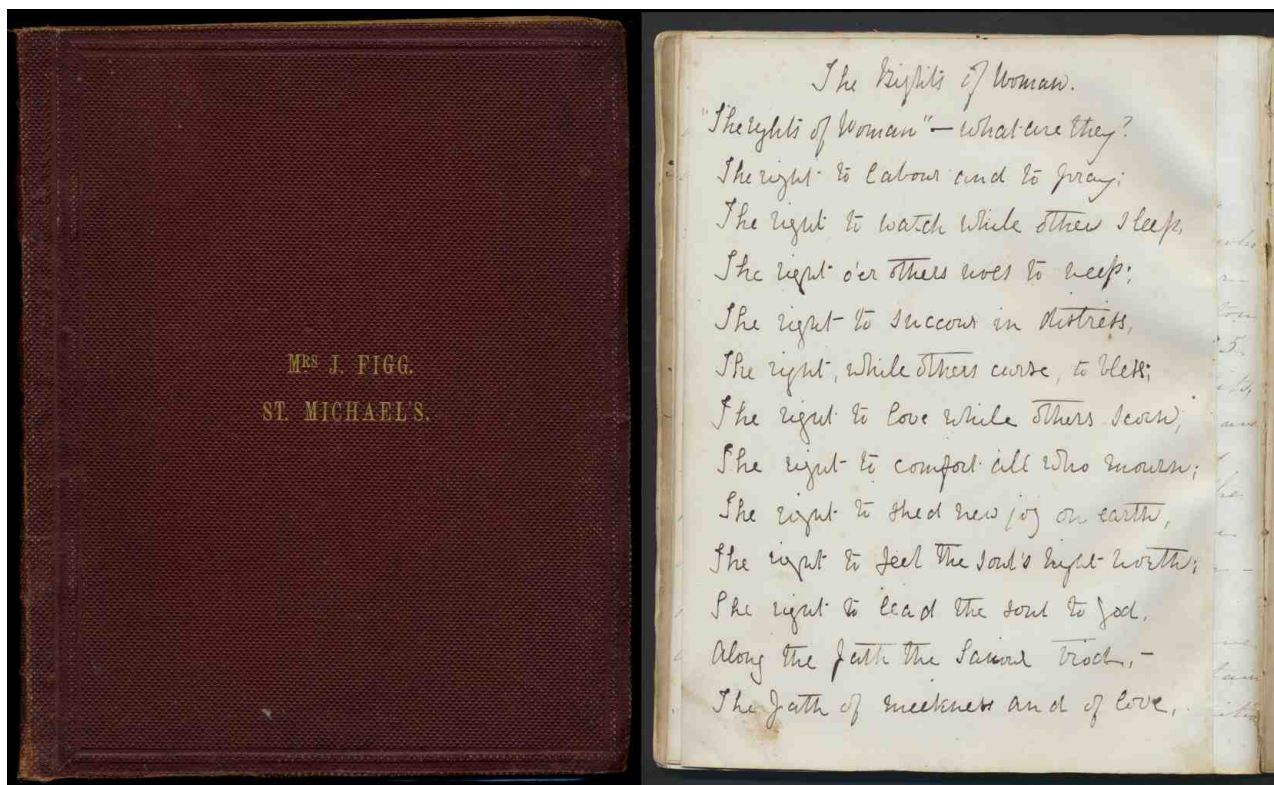 MRS J. FIGG.
ST. MICHAEL'S.
The Rights of Woman.
"The rights of Woman" — what are they?
The right to labour and to pray;
The right to watch while other sleep,
The right o'er others woes to weep;
The right to succour in distress,
The right, while others curse, to bless;
The right to love while others scorn,
The right to comfort all who mourn;
The right to shed new joy on earth,
The right to feel the soul's hight worth;
The right to lead the soul to God,
Along the path the Saviour trod, —
The path of meekness and of love,